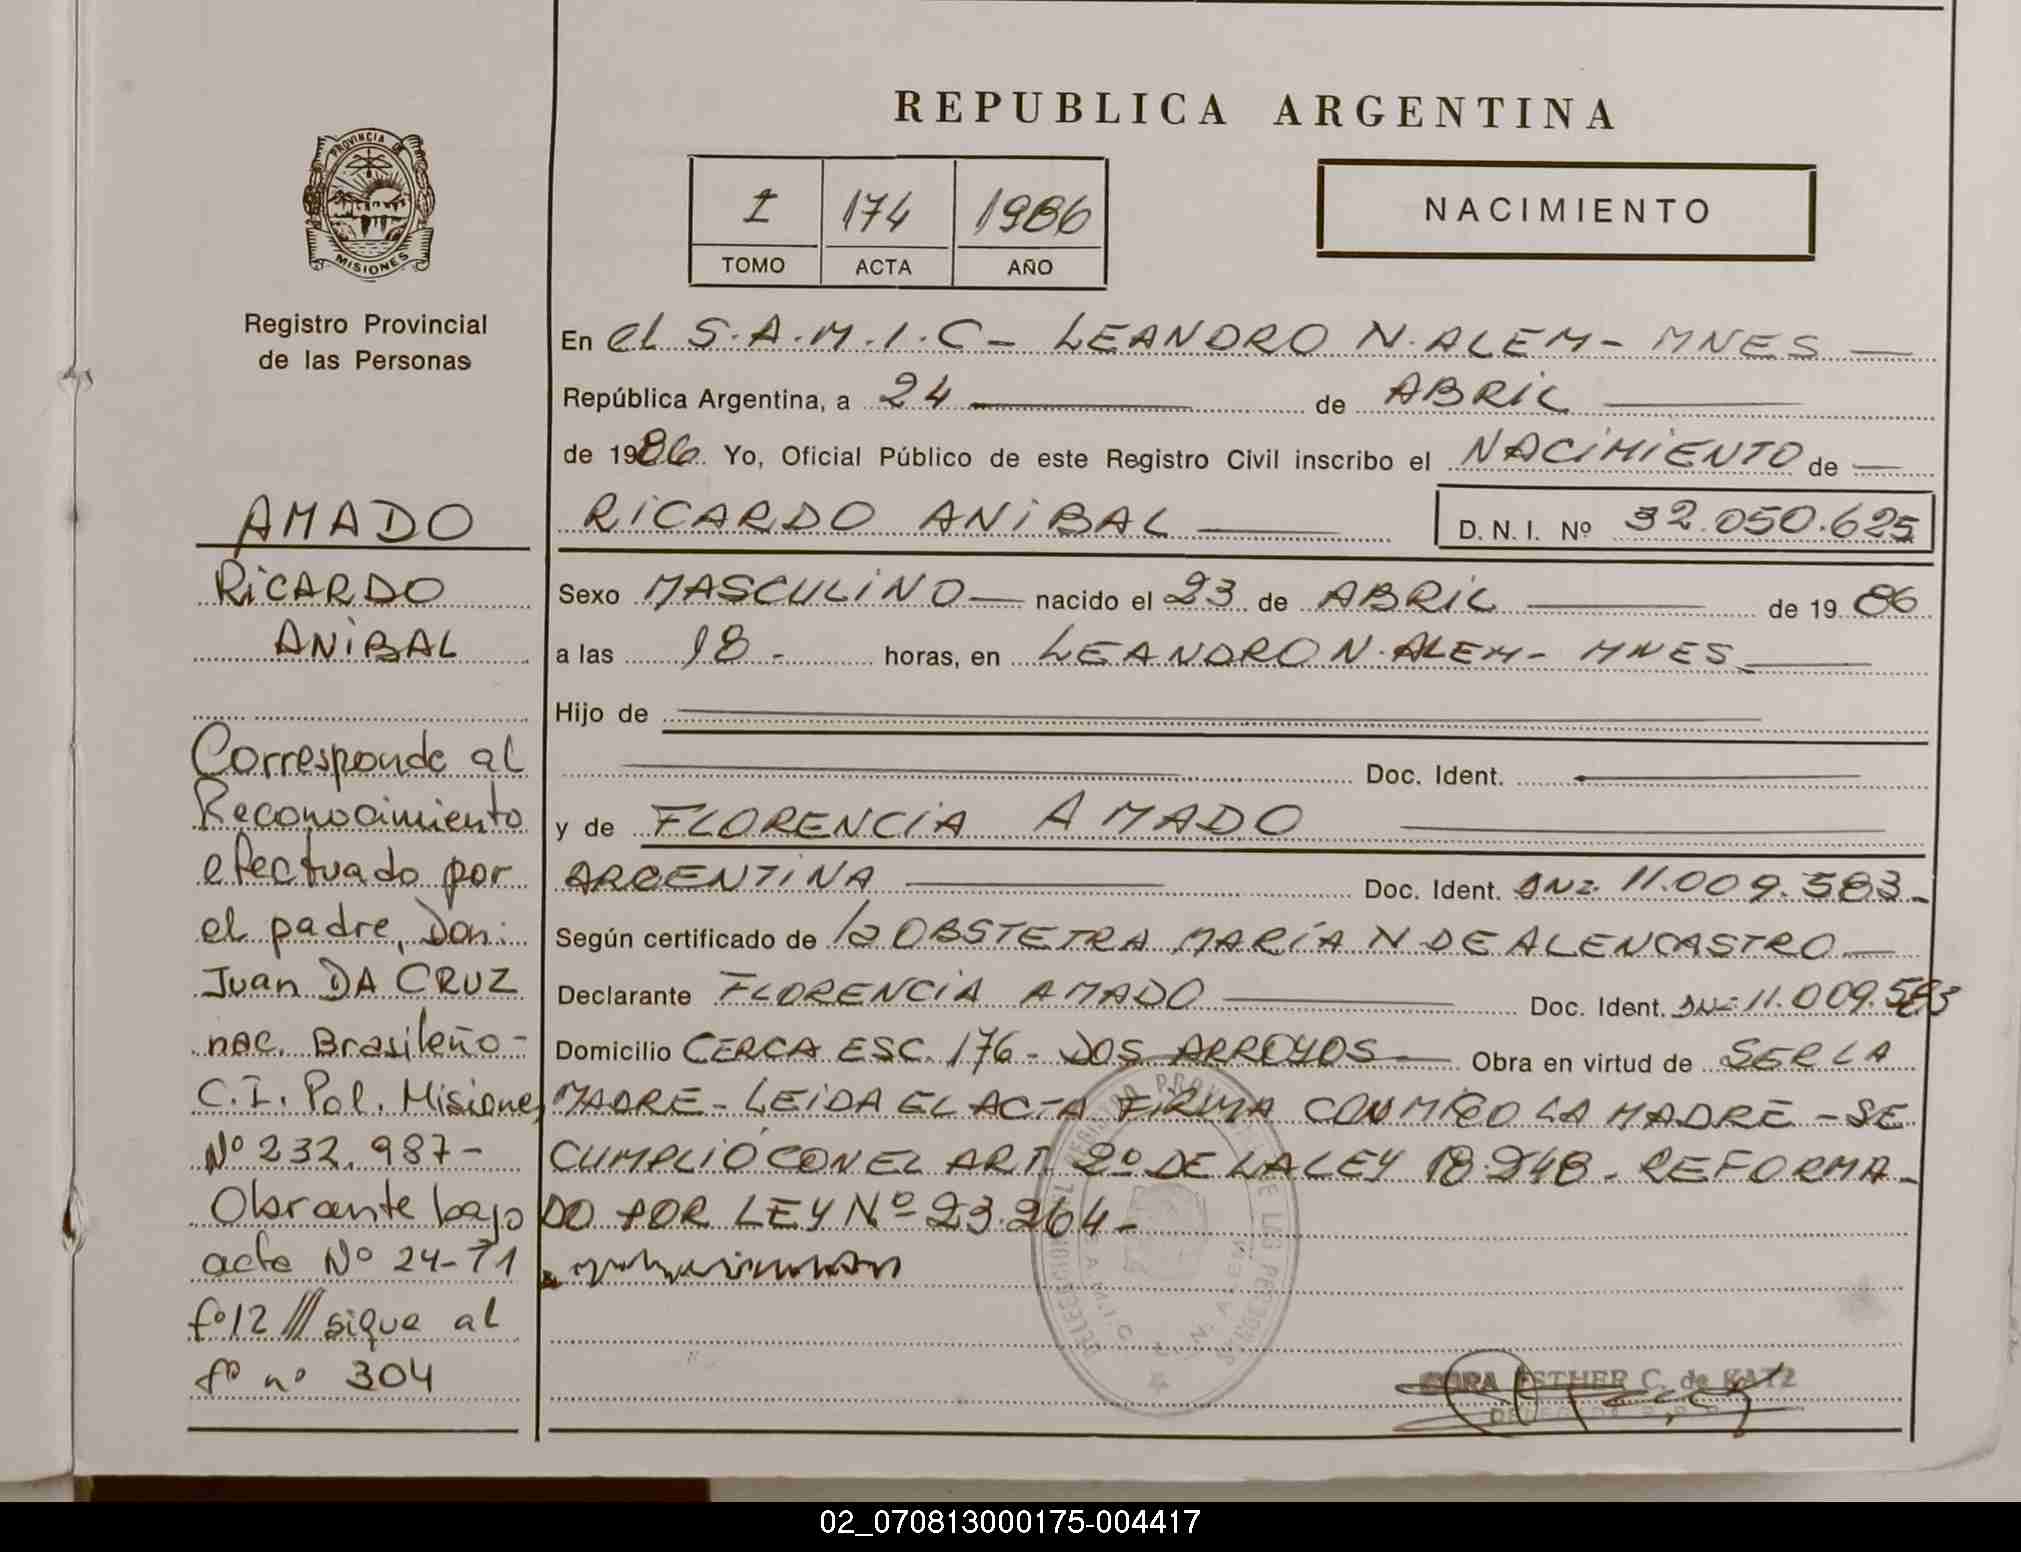 REPUBLICA ARGENTINA
PROVINCIA DE
MISIONES
Registro Provincial
de las Personas
I 174 1986
TOMO ACTA AÑO
NACIMIENTO
En el S.A.M.I.C - LEANDRO N. ALEM - MNES
República Argentina, a 24 de ABRIL
de 1986. Yo, Oficial Público de este Registro Civil inscribo el NACIMIENTO de
RICARDO ANIBAL D. N. I. Nº 32.050.625
Sexo MASCULINO nacido el 23 de ABRIL de 19 86
a las 18 - horas, en LEANDRO N. ALEM - MNES
Hijo de
Doc. Ident.
y de FLORENCIA AMADO
ARGENTINA Doc. Ident. DNI. 11.009.583 -
Según certificado de la OBSTETRA MARÍA N DE ALENCASTRO
Declarante FLORENCIA AMADO Doc. Ident. DNI 11.009.583
Domicilio CERCA ESC. 176 - DOS ARROYOS Obra en virtud de SER LA
MADRE - LEIDA EL ACTA FIRMA CONMIGO LA MADRE - SE
CUMPLIÓ CON EL ART. 2º DE LA LEY 18.248 - REFORMA-
DO POR LEY Nº 23.264 -
AMADO
RICARDO
ANIBAL
Corresponde al
Reconocimiento
efectuado por
el padre, Don:
Juan DA CRUZ
nac. Brasileño -
C.I. Pol. Misiones
Nº 232.987 -
Obrante bajo
acta Nº 24 - T1
fº 12 /// sigue al
fº nº 304
CORA ESTHER C. de KATZ
02_070813000175-004417